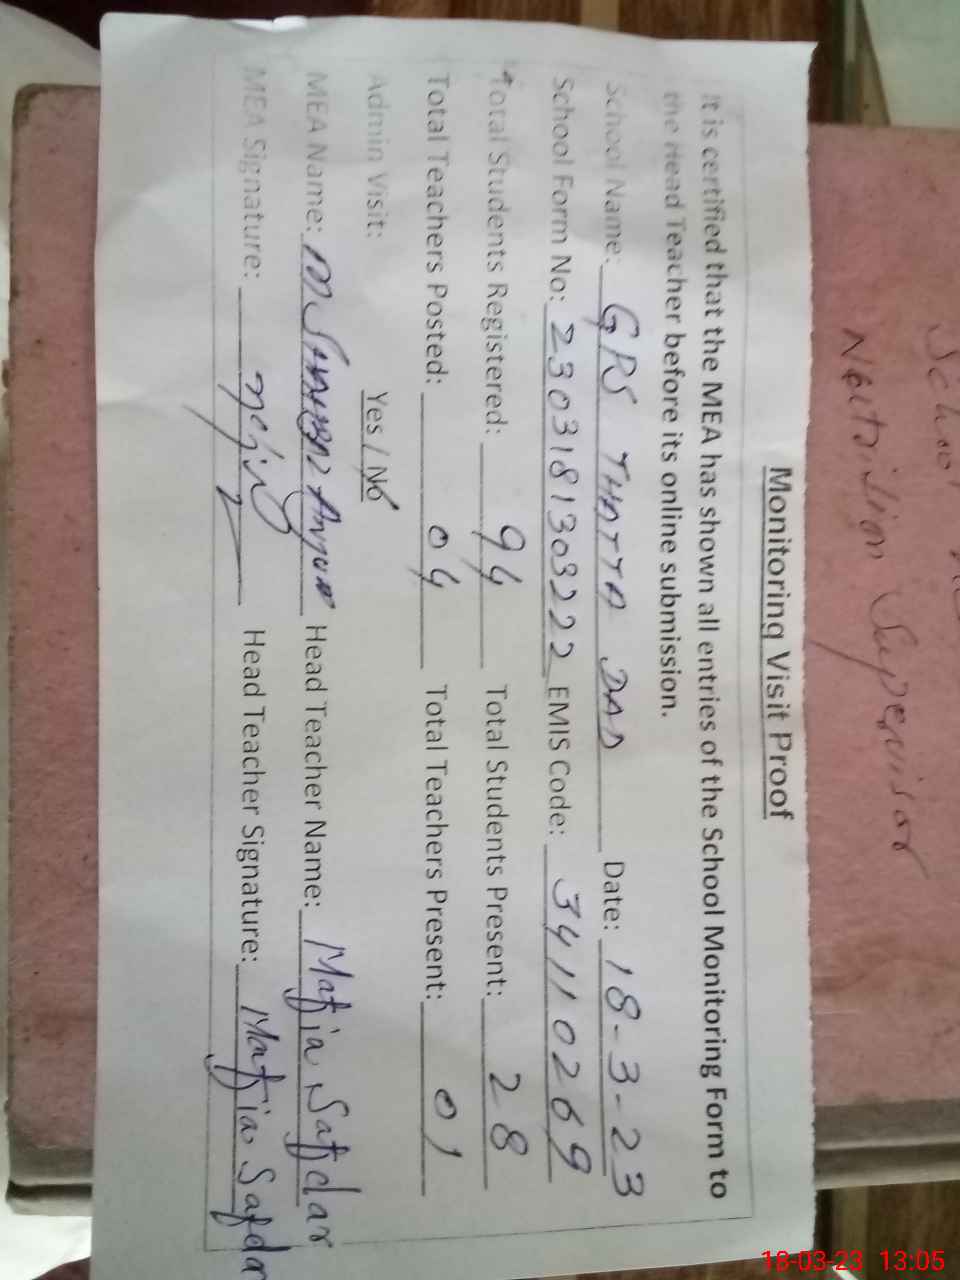 Monitoring Visit Proof
It is certified that the MEA has shown all entries of the School Monitoring Form to
the Head Teacher before its online submission.
School Name: GPS THATTA DAD Date: 18-3-23
School Form No: 2303181303222 EMIS Code: 34110269
Total Students Registered: 94 Total Students Present: 28
Total Teachers Posted: 04 Total Teachers Present: 01
Admin Visit: Yes / No
MEA Name: M Anjum Head Teacher Name: Mafia Safdar
MEA Signature: Head Teacher Signature: Mafia Safdar
School
Nutrition Supervisor
18-03-23 13:05